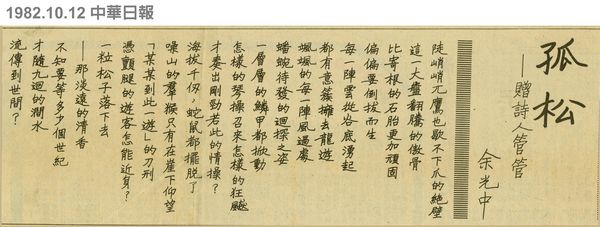 1982.10.12 中華日報
孤松
——贈詩人管管
余光中
陡峭峭兀鷹也歇不下爪的絕壁
這一大盤翻騰的傲骨
比寄根的石胎更加頑固
偏偏要倒拔而生
每一陣雲從谷底湧起
都有意簇擁去龍遊
颯颯的每一陣風過處
蟠蜿待發的迴探之姿
一層層的鱗甲都掀動
怎樣的琴操召來怎樣的狂飈
才奏出剛勁若此的情操？
海拔千仞，蛇鼠都擺脫了
噪山的羣猴只有在崖下仰望
「某某到此一遊」的刀刑
憑顫腿的遊客怎能近身？
一粒松子落下去
——那淡遠的清香
不知要等多少個世紀
才隨九迴的澗水
流傳到世間？